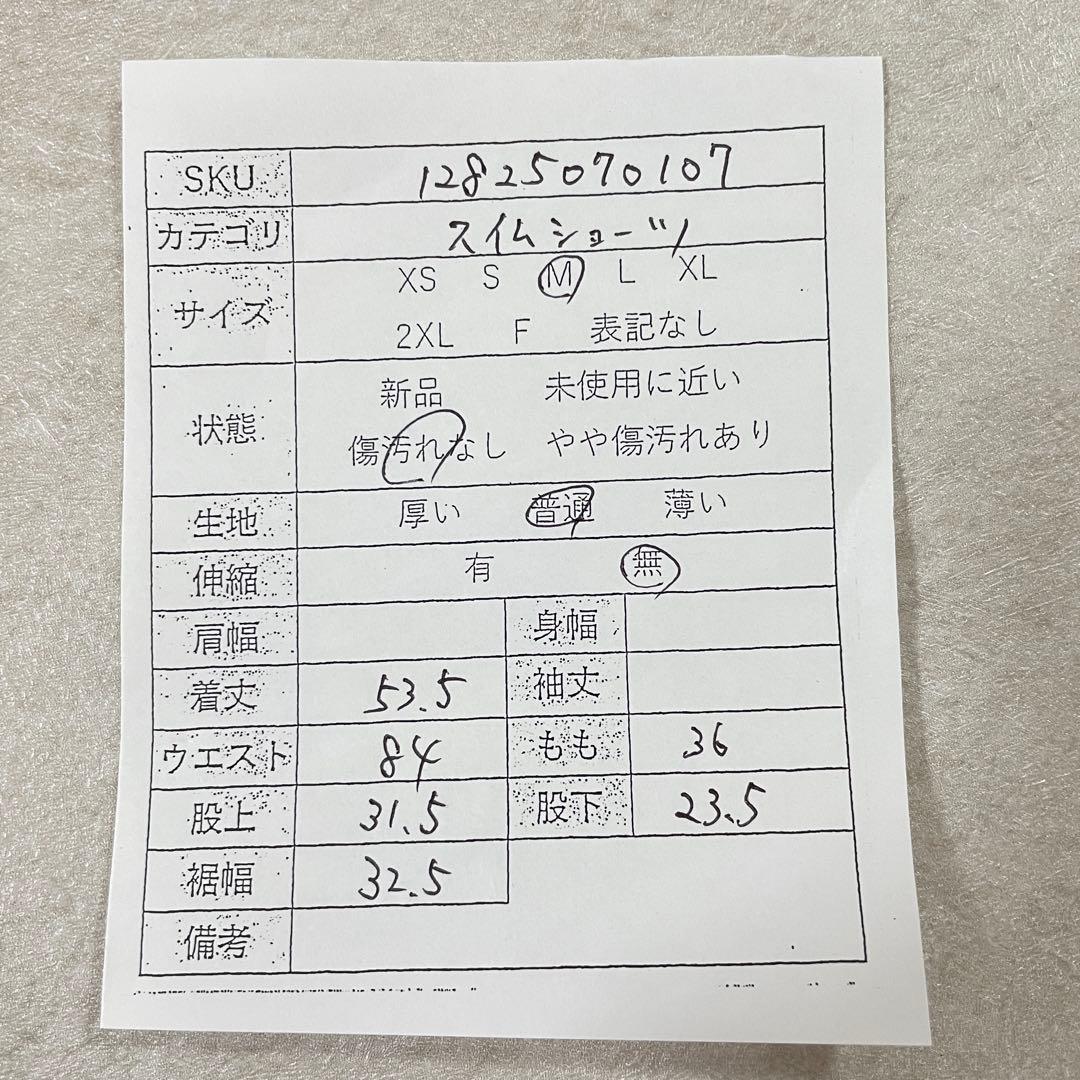 SKU 12825070107
カテゴリ スイムショーツ
サイズ XS S M L XL
2XL F 表記なし
状態 新品 未使用に近い
傷汚れなし やや傷汚れあり
生地 厚い 普通 薄い
伸縮 有 無
肩幅 身幅
着丈 53.5 袖丈
ウエスト 84 もも 36
股上 31.5 股下 23.5
裾幅 32.5
備考